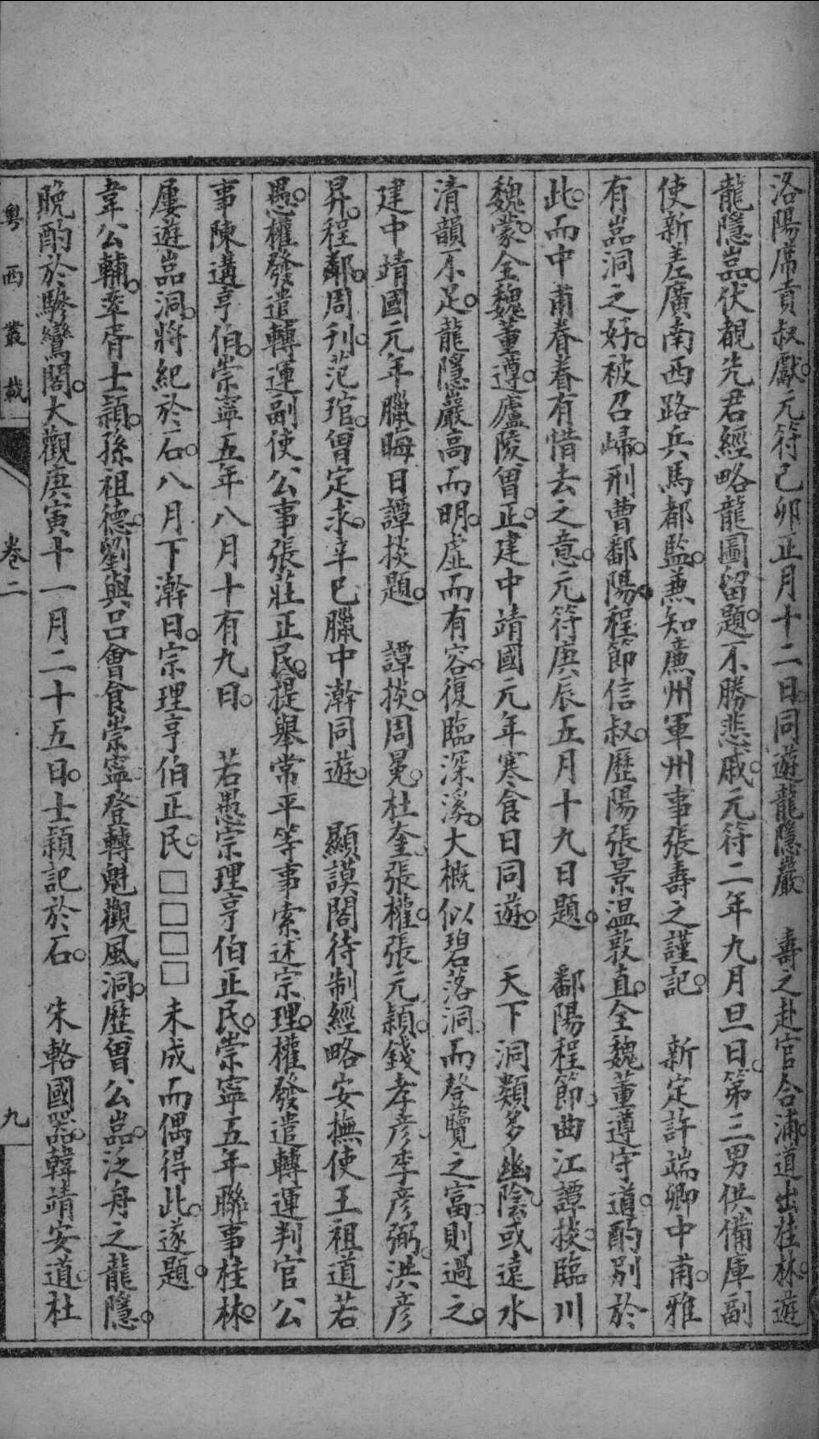 洛陽席貢叔獻。元符己卯正月十二日。同遊龍隱巖。　壽之赴官合浦。道出桂林。遊
龍隱嵓。伏覩先君經略龍圖留題。不勝悲戚。元符二年九月旦日。第三男供備庫副
使新差廣南西路兵馬都監。兼知廉州軍州事張壽之謹記。　新定許端卿中甫。雅
有嵓洞之好。被召歸。刑曹鄱陽。程節信叔。歷陽張景温敦直。全魏董遵守道。酌别於
此。而中甫眷眷有惜去之意。元符庚辰五月十九日題。　鄱陽程節。曲江譚掞。臨川
魏蒙。全魏董遵。廬陵曾正。建中靖國元年寒食日同遊。　天下洞類多幽陰。或遠水
清韻不足。龍隱巖高而明。虚而有容。復臨深溪。大概似碧落洞。而登覽之富。則過之。
建中靖國元年臘晦日譚掞題。　譚掞。周冕。杜奎。張權。張元穎。錢孝彦。李彦弼。洪彦
昇。程鄰。周刋。范琯。曾定求。辛巳臘中澣同遊。　顯謨閣待制經略安撫使王祖道若
愚。權發遣轉運副使公事張莊正民。提舉常平等事索述宗理。權發遣轉運判官公
事陳遘亨伯。崇寧五年八月十有九日。　若愚宗理亨伯正民。崇寧五年聯事桂林。
屢遊嵓洞。將紀於石。八月下澣日。宗理亨伯正民。□□□□未成而偶得此。遂題。
韋公輔。率胥士穎。孫祖德。劉與吕會食崇寧。登轉魁觀風洞。歷曾公嵓。泛舟之龍隱。
晚酌於驂鸞閣。大觀庚寅十一月二十五日。士穎記於石。　朱輅國器。韓靖安道。杜
粤西叢載
卷二
九